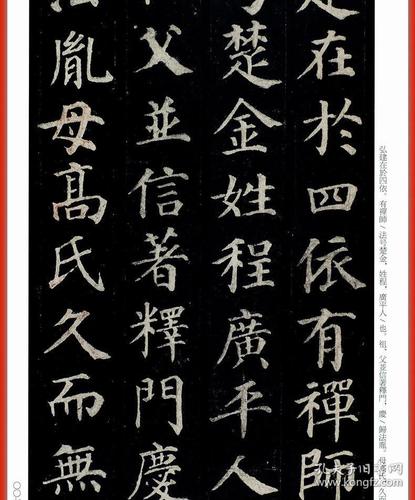 建在於四依有禪師
号楚金姓程廣平人
祖父並信著釋門慶
法胤母高氏久而無
弘建在於四依。有禪師/法号楚金，姓程，廣平人/也。祖、父並信著釋門，慶/歸法胤。母高氏久而
孔夫子旧书网
kongfz.com